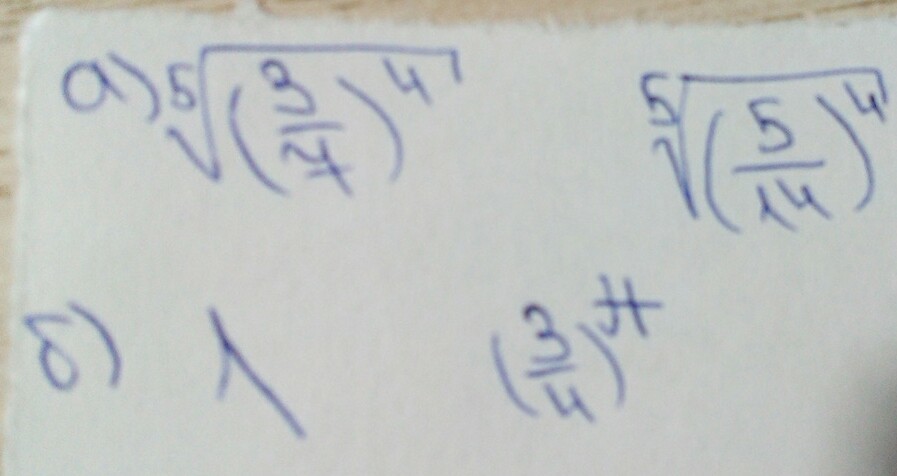 а) ⁵√(3/7)⁴ ⁵√(5/14)⁴
б) 1 (3/4)⁷